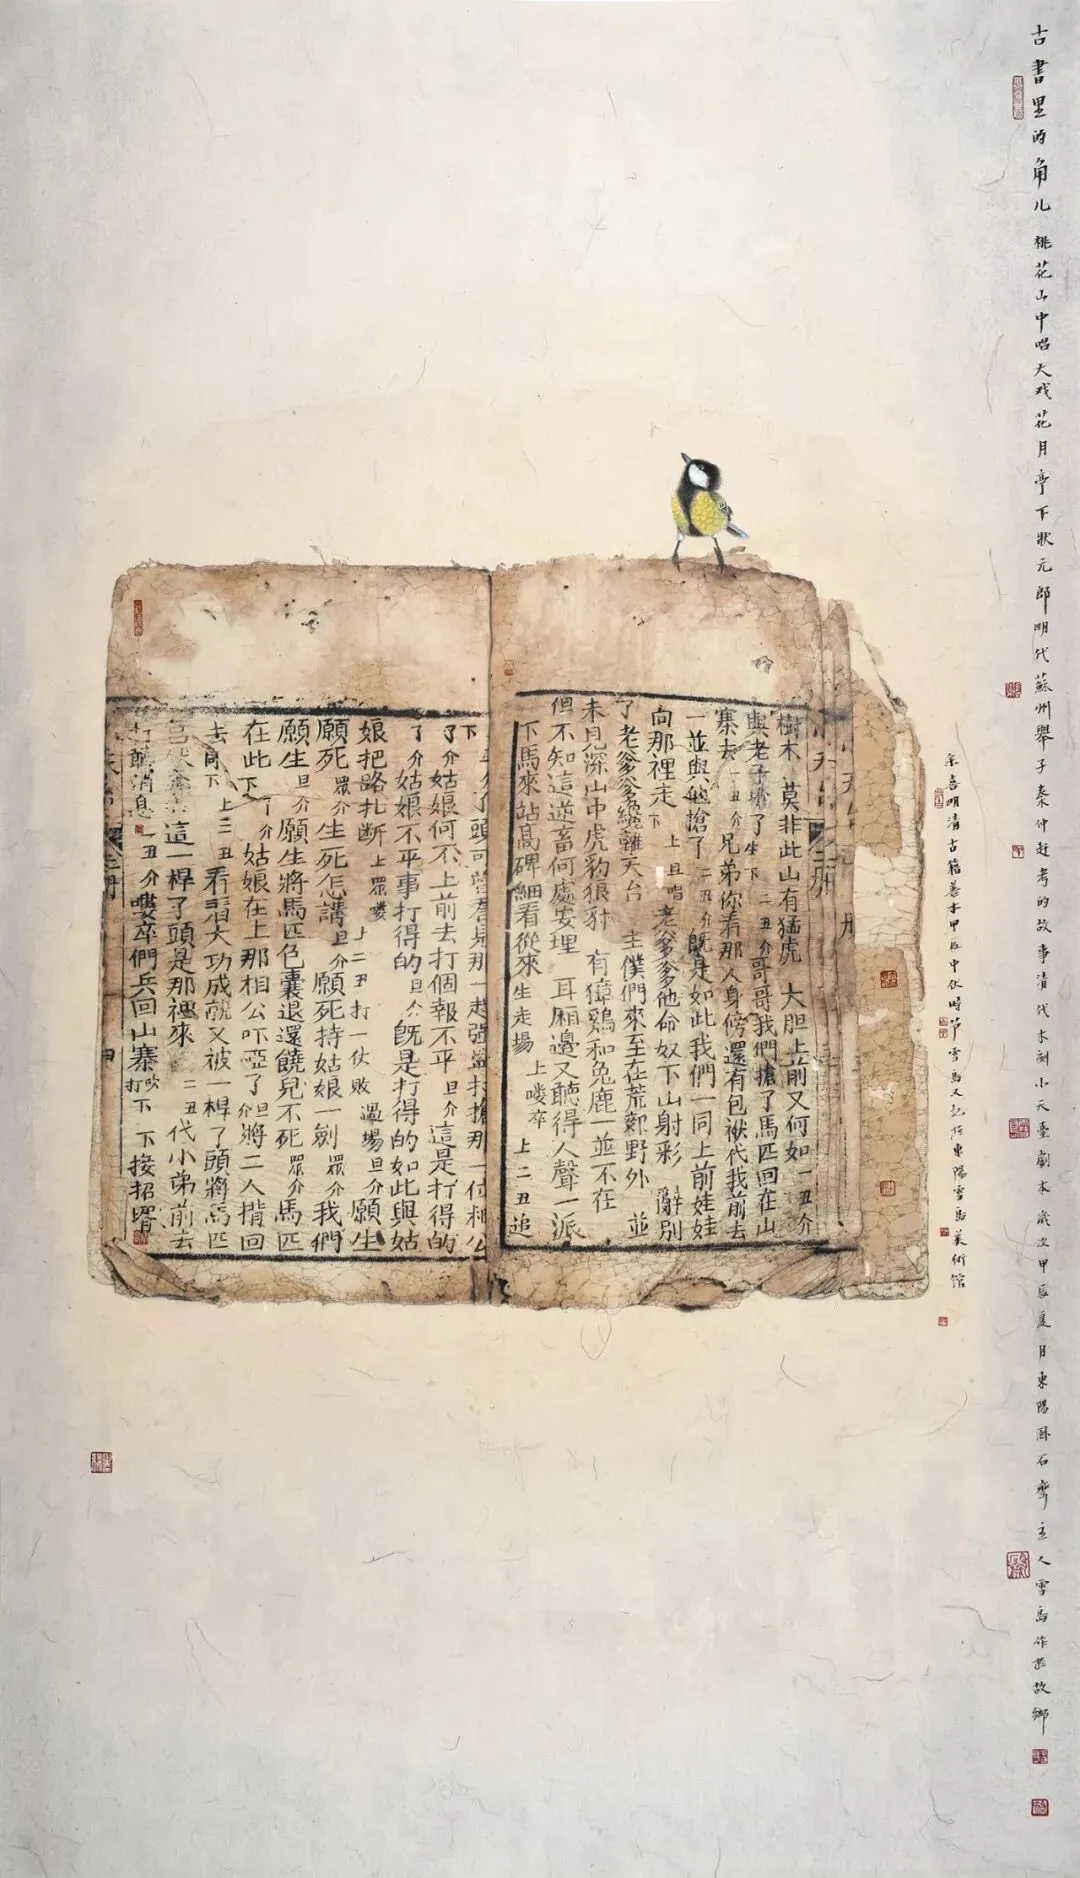 古書里的角儿 桃花山中唱大戏花月亭下狀元郎明代蘇州舉子秦仲赶考的故事清代木刻小天臺劇本歲次甲辰夏月東陽臥石齋主人雪馬作於故鄉
余喜明清古籍善本甲辰中伏時節雪馬又記於東陽雪馬美術館
樹木 莫非此山有猛虎 大胆上前又何如 一丑介
與老子搶了 生下 二丑介 哥哥我們搶了馬匹回在山
寨去 一丑介 兄弟你看那人身傍還有包袱代我前去
一並與他搶了 二丑介 既是如此我們一同上前娃娃
向那裡走 下 上旦唱 老爹爹他命奴下山射彩 辭別
了老爹爹纔離天台 主僕們來至在荒郊野外 並
未見深山中虎豹狼豺 有獐鷄和兔鹿一並不在
但不知這逆畜何處安埋 耳厢邊又聽得人聲一派
下馬來站高碑細看從來 生走場 上喽卒 上二丑追
下 丫頭可曾看見那一起强盗打搶那一位相公
丫介 姑娘何不上前去打個報不平 旦介 這是打得的
丫介 姑娘不平事打得的 旦介 既是打得的如此與姑
娘把路扎断 上眾喽 上二丑打一仗敗 過場 旦介 願生
願死 眾介 生死怎講 旦介 願死持姑娘一劍 眾介 我們
願生 旦介 願生將馬匹包囊退還饒兒不死 眾介 馬匹
在此 下 丫介 姑娘在上那相公吓啞了 旦介 將二人揹回
去 同下 上二丑 看看大功成就又被一桿丫頭將馬匹
這一桿丫頭是那裡來 二丑 代小弟前去
打聽消息 一丑介 嘍卒們兵回山寨 吹打下 下接招壻